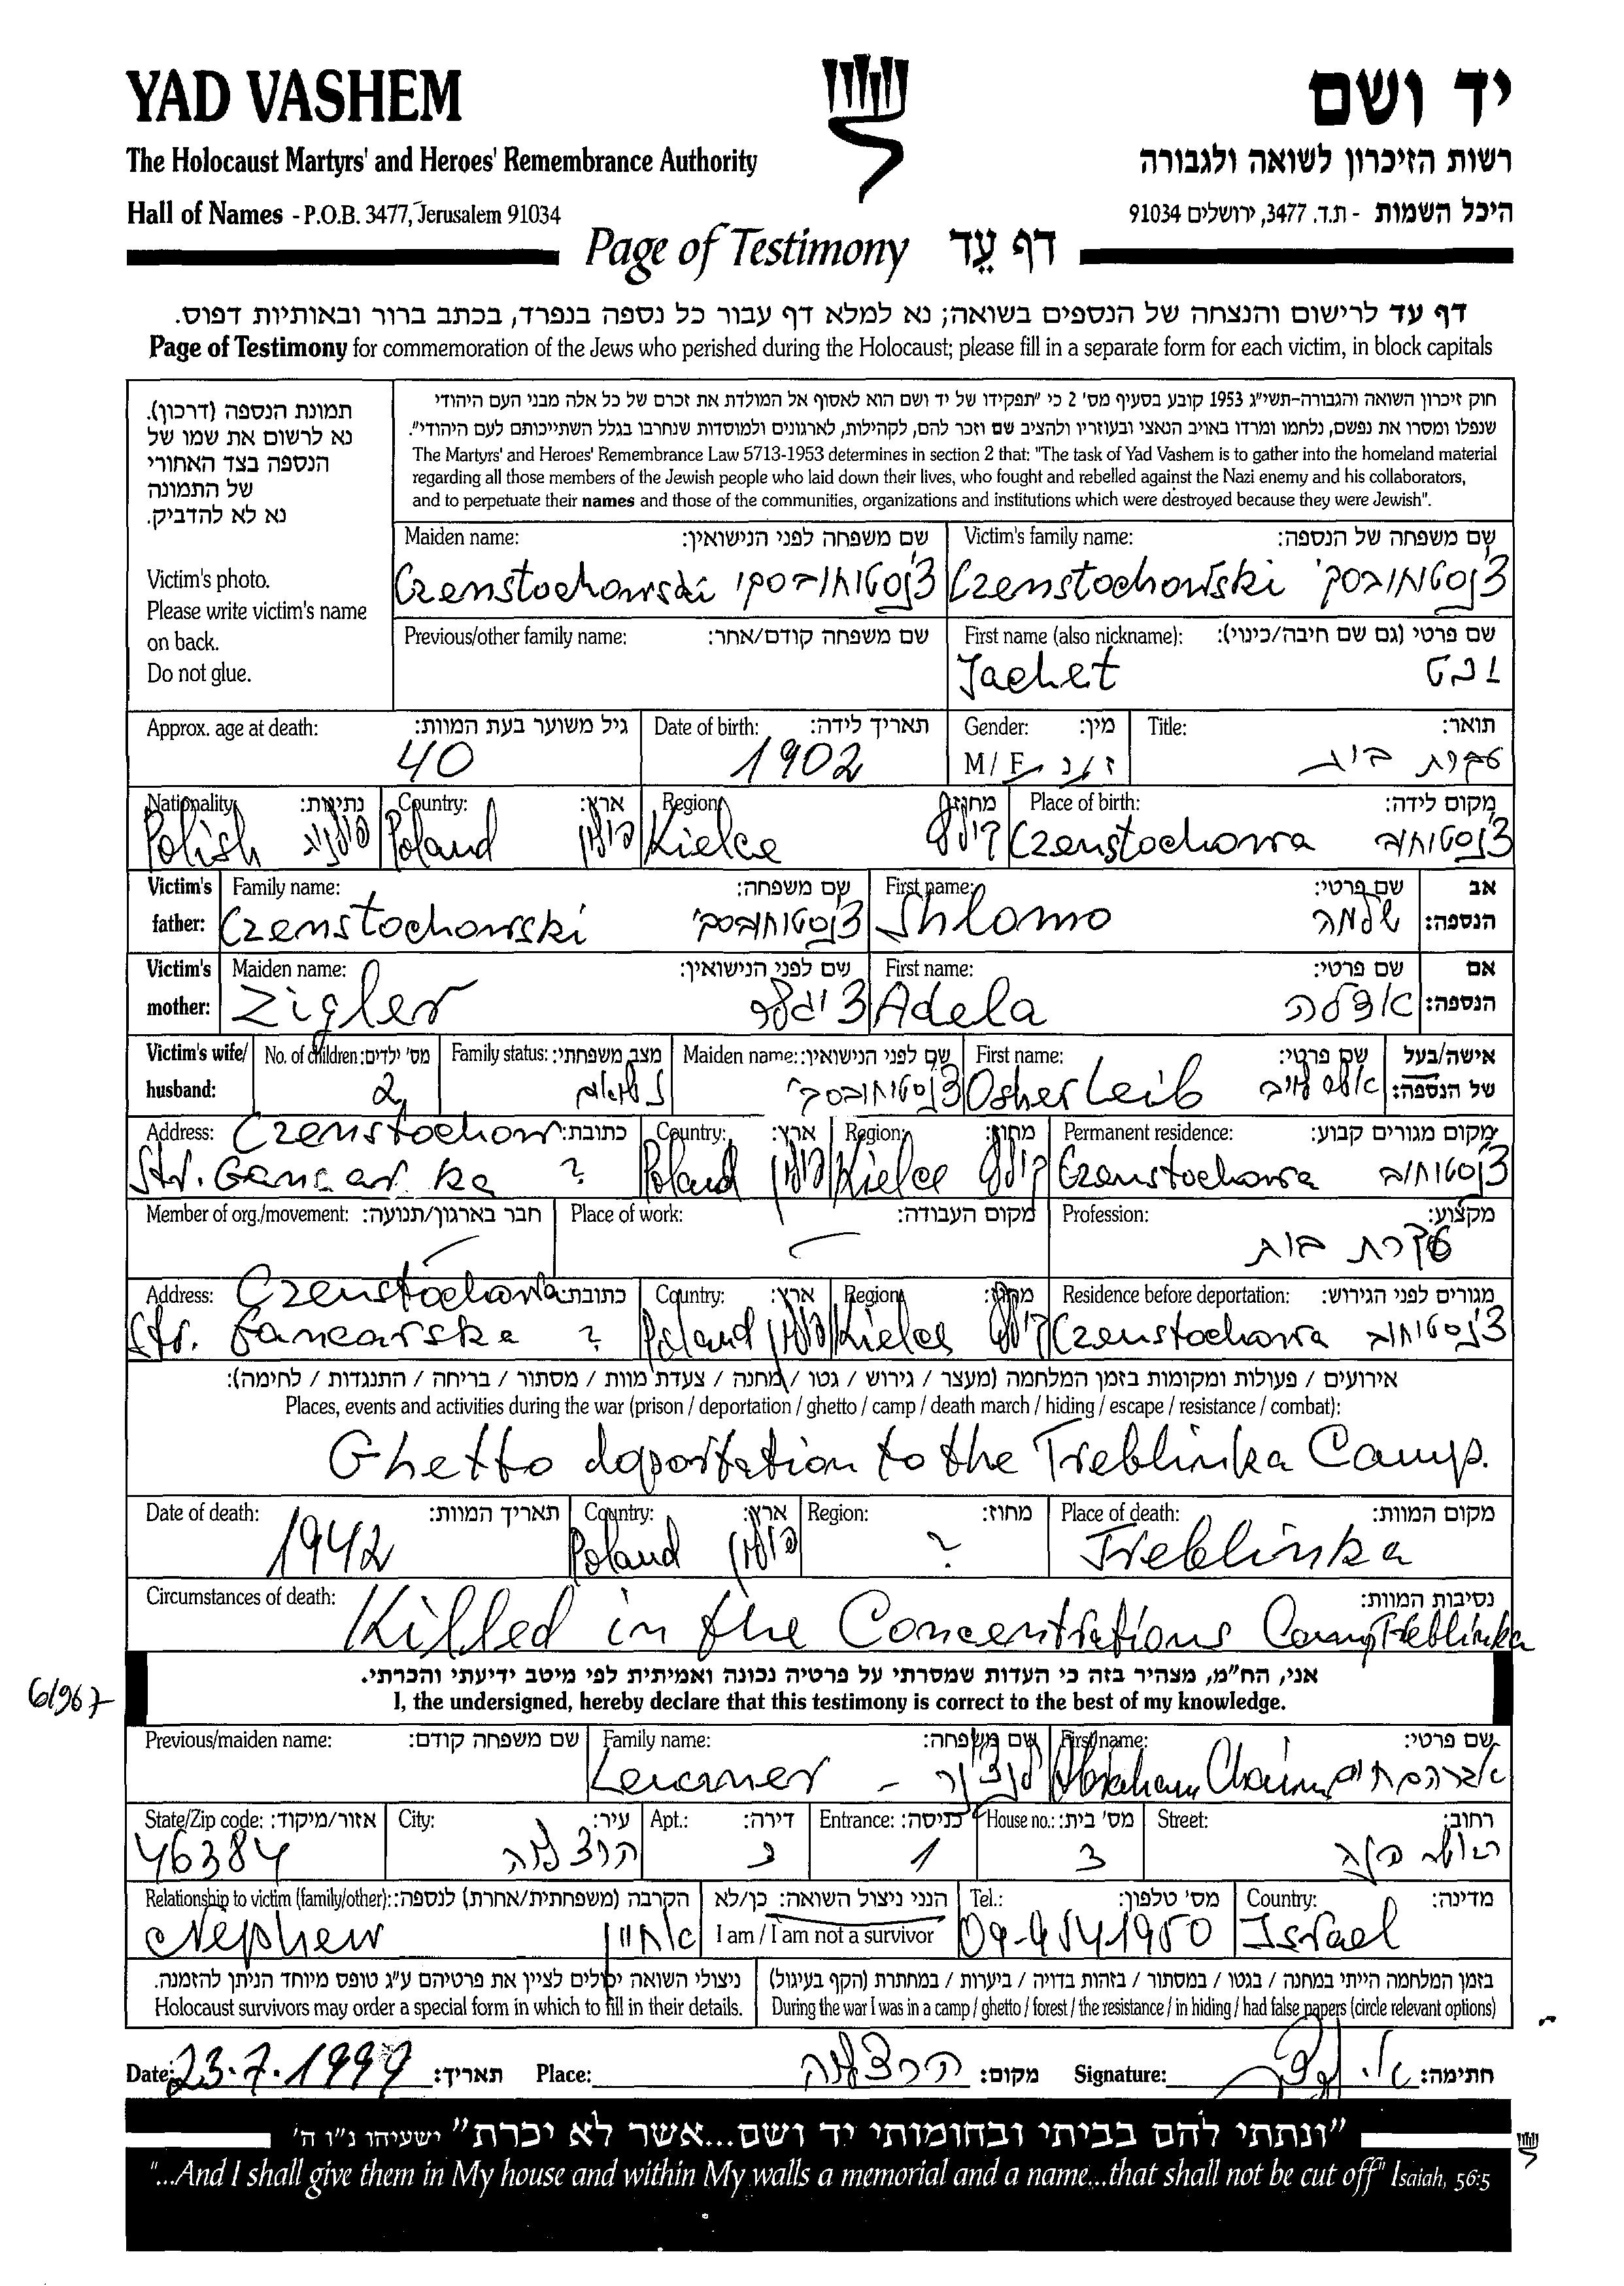 YAD VASHEM
יד ושם
The Holocaust Martyrs' and Heroes' Remembrance Authority
רשות הזיכרון לשואה ולגבורה
Hall of Names - P.O.B. 3477, Jerusalem 91034
היכל השמות - ת.ד. 3477, ירושלים 91034
Page of Testimony דף עֵד
דף עד לרישום והנצחה של הנספים בשואה; נא למלא דף עבור כל נספה בנפרד, בכתב ברור ובאותיות דפוס.
Page of Testimony for commemoration of the Jews who perished during the Holocaust; please fill in a separate form for each victim, in block capitals
תמונת הנספה (דרכון).
נא לרשום את שמו של
הנספה בצד האחורי
של התמונה
נא לא להדביק.
Victim's photo.
Please write victim's name
on back.
Do not glue.
חוק זיכרון השואה והגבורה-תשי"ג 1953 קובע בסעיף מס' 2 כי "תפקידו של יד ושם הוא לאסוף אל המולדת את זכרם של כל אלה מבני העם היהודי
שנפלו ומסרו את נפשם, נלחמו ומרדו באויב הנאצי ובעוזריו ולהציב שם וזכר להם, לקהילות, לארגונים ולמוסדות שנחרבו בגלל השתייכותם לעם היהודי".
The Martyrs' and Heroes' Remembrance Law 5713-1953 determines in section 2 that: "The task of Yad Vashem is to gather into the homeland material
regarding all those members of the Jewish people who laid down their lives, who fought and rebelled against the Nazi enemy and his collaborators,
and to perpetuate their names and those of the communities, organizations and institutions which were destroyed because they were Jewish".
Maiden name: שם משפחה לפני הנישואין: Victim's family name: שם משפחה של הנספה:
Czenstochowski צ'נסטוחובסקי Czenstochowski צ'נסטוחובסקי
Previous/other family name: שם משפחה קודם/אחר: First name (also nickname): שם פרטי (גם שם חיבה/כינוי):
Jachet יכט
Approx. age at death: גיל משוער בעת המוות: Date of birth: תאריך לידה: Gender: מין: Title: תואר:
40 1902 M/F ז/נ עקרת בית
Nationality: נתינות: Country: ארץ: Region: מחוז: Place of birth: מקום לידה:
Polish פולניה Poland פולין Kielce קילץ Czenstochowa צ'נסטוחוב
Victim's father: Family name: שם משפחה: First name: שם פרטי: אב הנספה:
Czenstochowski צ'נסטוחובסקי Shlomo שלמה
Victim's mother: Maiden name: שם לפני הנישואין: First name: שם פרטי: אם הנספה:
Zigler ציגלר Adela אדלה
Victim's wife/ husband: No. of children: מס' ילדים: Family status: מצב משפחתי: Maiden name: שם לפני הנישואין: First name: שם פרטי: אישה/בעל של הנספה:
2 נשואה צ'נסטוחובסקי Osher Leib אושר לייב
Address: כתובת: Country: ארץ: Region: מחוז: Permanent residence: מקום מגורים קבוע:
Czenstochow
Str. Gancarska ? Poland פולין Kielce קילץ Czenstochowa צ'נסטוחוב
Member of org./movement: חבר בארגון/תנועה: Place of work: מקום העבודה: Profession: מקצוע:
עקרת בית
Address: כתובת: Country: ארץ: Region: מחוז: Residence before deportation: מגורים לפני הגירוש:
Czenstochowa
Str. Gancarska ? Poland פולין Kielce קילץ Czenstochowa צ'נסטוחוב
אירועים / פעולות ומקומות בזמן המלחמה (מעצר / גירוש / גטו / מחנה / צעדת מוות / מסתור / בריחה / התנגדות / לחימה):
Places, events and activities during the war (prison / deportation / ghetto / camp / death march / hiding / escape / resistance / combat):
Ghetto doportation to the Treblinka Camp.
Date of death: תאריך המוות: Country: ארץ: Region: מחוז: Place of death: מקום המוות:
1942 Poland פולין ? Treblinka
Circumstances of death: נסיבות המוות:
Killed in the Concentrations Camp Treblinka
6/967
אני, הח"מ, מצהיר בזה כי העדות שמסרתי על פרטיה נכונה ואמיתית לפי מיטב ידיעתי והכרתי.
I, the undersigned, hereby declare that this testimony is correct to the best of my knowledge.
Previous/maiden name: שם משפחה קודם: Family name: שם משפחה: First name: שם פרטי:
Lenczner לנצ'נר Abraham Chaim אברהם חיים
State/Zip code: אזור/מיקוד: City: עיר: Apt.: דירה: Entrance: כניסה: House no.: מס' בית: Street: רחוב:
46384 הרצליה 1 3
Relationship to victim (family/other): הקרבה (משפחתית/אחרת) לנספה: הנני ניצול השואה: כן/לא Tel.: מס' טלפון: Country: מדינה:
Nephew אחיין I am / I am not a survivor 09-9541950 Israel
ניצולי השואה יכולים לציין את פרטיהם ע"ג טופס מיוחד הניתן להזמנה. בזמן המלחמה הייתי במחנה / בגטו / במסתור / בזהות בדויה / ביערות / במחתרת (הקף בעיגול)
Holocaust survivors may order a special form in which to fill in their details. During the war I was in a camp / ghetto / forest / the resistance / in hiding / had false papers (circle relevant options)
Date: 23.7.1999 תאריך: Place: הרצליה מקום: Signature: חתימה:
"ונתתי להם בביתי ובחומותי יד ושם...אשר לא יכרת" ישעיהו נ"ו ה'
"...And I shall give them in My house and within My walls a memorial and a name...that shall not be cut off" Isaiah, 56:5